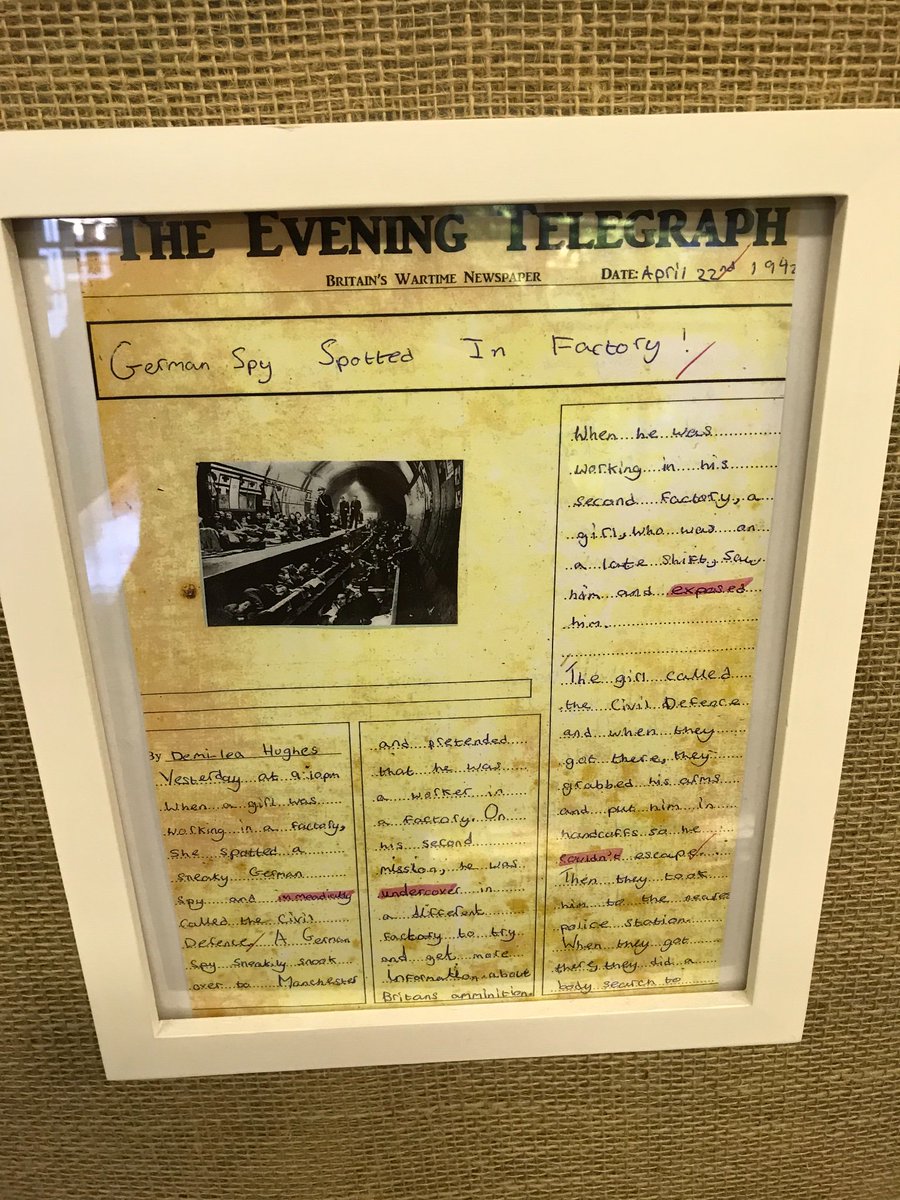 THE EVENING TELEGRAPH
BRITAIN'S WARTIME NEWSPAPER
DATE: April 22nd 194
German Spy Spotted In Factory!
By Demi-lea Hughes
Yesterday at 9:10pm
When a girl was
working in a factory,
she spotted a
sneaky German
spy and
called the Civil
Defence. A German
spy sneakily snook
over to Manchester
and pretended
that he was
a worker in
a factory. On
his second
mission, he was
undercover in
a different
factory to try
and get more
information about
Britans amminition.
When he was
working in his
second factory, a
girl, who was on
a late shift, saw
him and exposed
him.
The girl called
the Civil Defence
and when they
got there, they
grabbed his arms
and put him in
handcuffs so he
couldn't escape.
Then they took
him to the neares
police station.
When they got
there, they did a
body search to